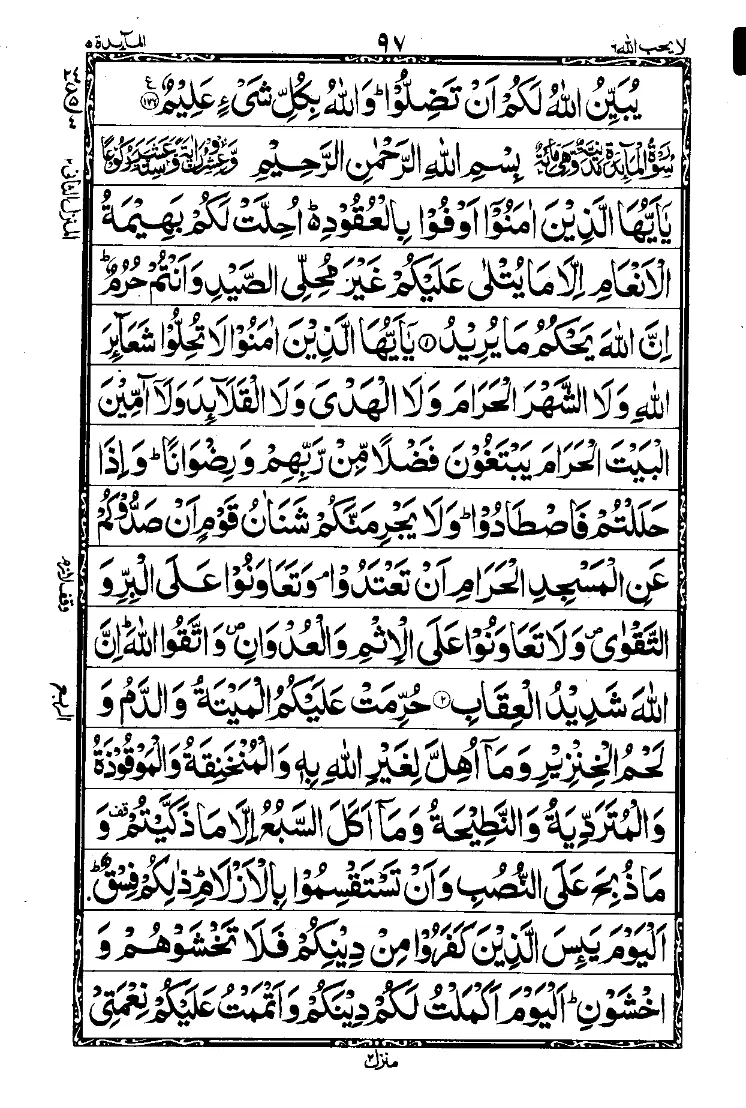 لا يحب الله ٦ ٩٧ المآئدة ٥
يُبَيِّنُ اللهُ لَكُمْ اَنْ تَضِلُّوْا ؕ وَاللهُ بِكُلِّ شَیْءٍ عَلِيْمٌ ۧ ﴿۱۷۶﴾
سُوْرَةُ الْمَآئِدَةِ مَدَنِيَّةٌ وَّهِیَ مِائَةٌ بِسْمِ اللهِ الرَّحْمٰنِ الرَّحِيْمِ وَّعِشْرُوْنَ اٰيَةً وَّسِتَّةَ عَشَرَ رُكُوْعًا
يٰۤاَيُّهَا الَّذِيْنَ اٰمَنُوْۤا اَوْفُوْا بِالْعُقُوْدِ ؕ اُحِلَّتْ لَكُمْ بَهِيْمَةُ
الْاَنْعَامِ اِلَّا مَا يُتْلٰى عَلَيْكُمْ غَيْرَ مُحِلِّی الصَّيْدِ وَاَنْتُمْ حُرُمٌ ؕ
اِنَّ اللهَ يَحْكُمُ مَا يُرِيْدُ ﴿۱﴾ يٰۤاَيُّهَا الَّذِيْنَ اٰمَنُوْا لَا تُحِلُّوْا شَعَآئِرَ
اللهِ وَلَا الشَّهْرَ الْحَرَامَ وَلَا الْهَدْیَ وَلَا الْقَلَآئِدَ وَلَاۤ آٰمِّيْنَ
الْبَيْتَ الْحَرَامَ يَبْتَغُوْنَ فَضْلًا مِّنْ رَّبِّهِمْ وَرِضْوَانًا ؕ وَاِذَا
حَلَلْتُمْ فَاصْطَادُوْا ؕ وَلَا يَجْرِمَنَّكُمْ شَنَاٰنُ قَوْمٍ اَنْ صَدُّوْكُمْ
عَنِ الْمَسْجِدِ الْحَرَامِ اَنْ تَعْتَدُوْا ۘ وَتَعَاوَنُوْا عَلَى الْبِرِّ وَ
التَّقْوٰى ۪ وَلَا تَعَاوَنُوْا عَلَى الْاِثْمِ وَالْعُدْوَانِ ۪ وَاتَّقُوا اللهَ ؕ اِنَّ
اللهَ شَدِيْدُ الْعِقَابِ ﴿۲﴾ حُرِّمَتْ عَلَيْكُمُ الْمَيْتَةُ وَالدَّمُ وَ
لَحْمُ الْخِنْزِيْرِ وَمَاۤ اُهِلَّ لِغَيْرِ اللهِ بِهٖ وَالْمُنْخَنِقَةُ وَالْمَوْقُوْذَةُ
وَالْمُتَرَدِّيَةُ وَالنَّطِيْحَةُ وَمَاۤ اَكَلَ السَّبُعُ اِلَّا مَا ذَكَّيْتُمْ ۫ وَ
مَا ذُبِحَ عَلَى النُّصُبِ وَاَنْ تَسْتَقْسِمُوْا بِالْاَزْلَامِ ؕ ذٰلِكُمْ فِسْقٌ ؕ
اَلْيَوْمَ يَئِسَ الَّذِيْنَ كَفَرُوْا مِنْ دِيْنِكُمْ فَلَا تَخْشَوْهُمْ وَ
اخْشَوْنِ ؕ اَلْيَوْمَ اَكْمَلْتُ لَكُمْ دِيْنَكُمْ وَاَتْمَمْتُ عَلَيْكُمْ نِعْمَتِیْ
المنزل الثانی ٢
وقف لازم
الربع
منزل ٢